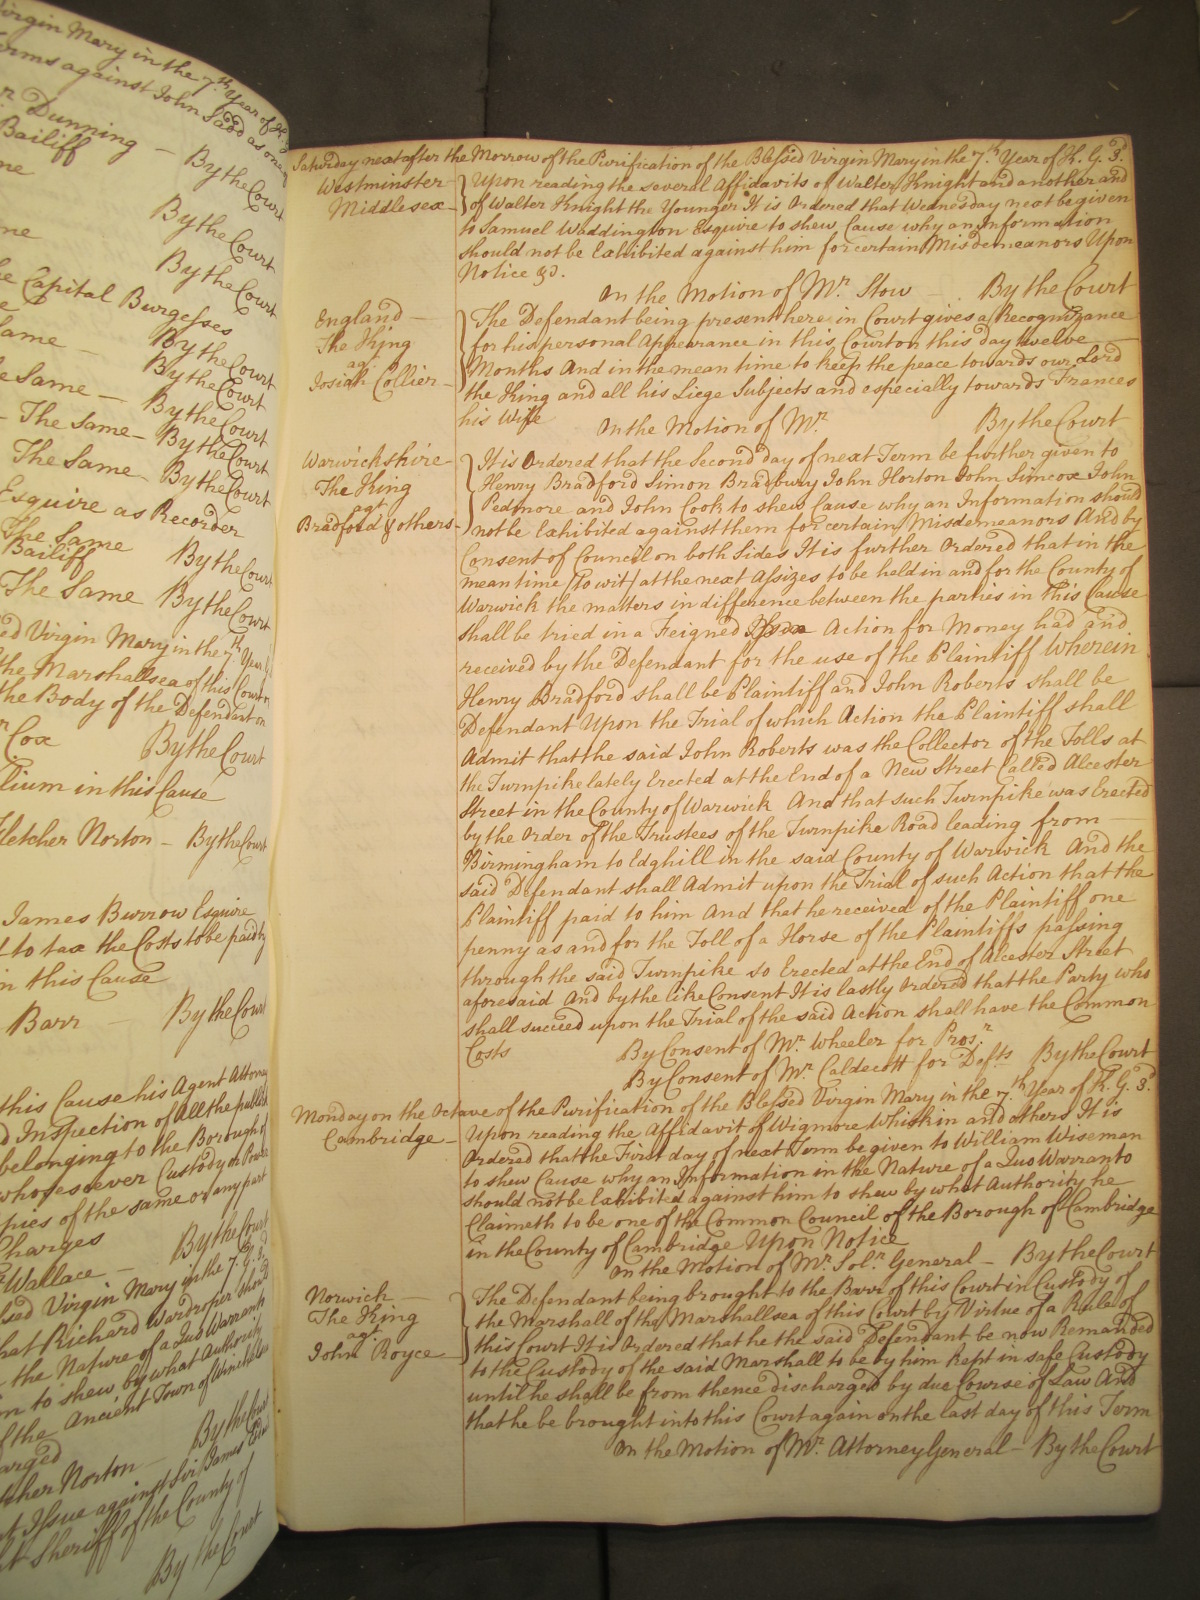 Virgin Mary in the 7th Year of K. G. 3
terms against John Ladd as one
Dunning — By the Court
Bailiff
me
By the Court
me
By the Court
Capital Burgesses
By the Court
Same — By the Court
Same — By the Court
The Same — By the Court
The Same — By the Court
Esquire as Recorder
The Same
Bailiff By the Court
The Same By the Court
ed Virgin Mary in the 7th Year
the Marshallsea of this Court
the Body of the Defendant on
Cox By the Court
in this Cause
Fletcher Norton — By the Court
James Burrow Esquire
to tax the Costs to be paid by
in this Cause
Barr — By the Court
this Cause his Agent Attorney
Inspection of All the publick
belonging to the Borough of
whosesoever Custody or Power
Copies of the same or any part
Charges By the Court
Wallace —
Virgin Mary in the 7. G. 3d
that Richard Wardroper should
the Nature of a Quo Warranto
to shew by what Authority
of the Ancient Town of Winchelsea
By the Court
Norton —
Issue against Sir James
Sheriff of the County of
By the Court
Saturday next after the Morrow of the Purification of the Blessed Virgin Mary in the 7th Year of K. G. 3d.
Westminster — Upon reading the several Affidavits of Walter Knight and another and
Middlesex — of Walter Knight the Younger It is Ordered that Wednesday next be given
to Samuel Waddington Esquire to shew Cause why an Information
should not be Exhibited against him for certain Misdemeanors Upon
Notice &c.
On the Motion of Mr. Stow — By the Court
England — The Defendant being present here in Court gives a Recognizance
The King for his personal Appearance in this Court on this day twelve —
agt Months And in the mean time to keep the peace towards our Lord
Josiah Collier — the King and all his Liege Subjects and especially towards Frances
his Wife On the Motion of Mr. By the Court
Warwickshire — It is Ordered that the Second day of next Term be further given to
The King Henry Bradford Simon Bradbury John Horton John Simcox John
agt Pedmore and John Cook to shew Cause why an Information should
Bradford & others — not be Exhibited against them for certain Misdemeanors And by
Consent of Council on both Sides It is further Ordered that in the
mean time /To wit/ at the next Assizes to be held in and for the County of
Warwick the matters in difference between the parties in this Cause
shall be tried in a Feigned Action for Money had and
received by the Defendant for the use of the Plaintiff Wherein
Henry Bradford shall be Plaintiff and John Roberts shall be
Defendant Upon the Trial of which Action the Plaintiff shall
Admit that the said John Roberts was the Collector of the Tolls at
the Turnpike lately Erected at the End of a New Street Called Alcester
Street in the County of Warwick And that such Turnpike was Erected
by the Order of the Trustees of the Turnpike Road leading from —
Birmingham to Edghill in the said County of Warwick And the
said Defendant shall Admit upon the Trial of such Action that the
Plaintiff paid to him And that he received of the Plaintiff one
penny as and for the Toll of a Horse of the Plaintiffs passing
through the said Turnpike so Erected at the End of Alcester Street
aforesaid And by the like Consent It is lastly Ordered that the Party who
shall succeed upon the Trial of the said Action shall have the Common
Costs By Consent of Mr. Wheeler for Prosr.
By Consent of Mr. Caldecott for Defts By the Court
Monday on the Octave of the Purification of the Blessed Virgin Mary in the 7th Year of K. G. 3d
Cambridge — Upon reading the Affidavit of Wigmore Whiskin and others It is
Ordered that the First day of next Term be given to William Wiseman
to shew Cause why an Information in the Nature of a Quo Warranto
should not be Exhibited against him to shew by what Authority he
Claimeth to be one of the Common Council of the Borough of Cambridge
in the County of Cambridge Upon Notice
On the Motion of Mr. Solr. General — By the Court
Norwich — The Defendant being brought to the Barr of this Court in Custody of
The King the Marshall of the Marshallsea of this Court by Virtue of a Rule of
agt this Court It is Ordered that he the said Defendant be now Remanded
John Royce — to the Custody of the said Marshall to be by him kept in safe Custody
until he shall be from thence discharged by due Course of Law And
that he be brought into this Court again on the last day of this Term
On the Motion of Mr. Attorney General — By the Court